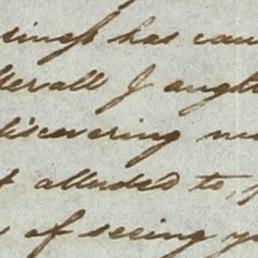 siness has cau
Overall I ought
discovering m
t alluded to,
of seeing y